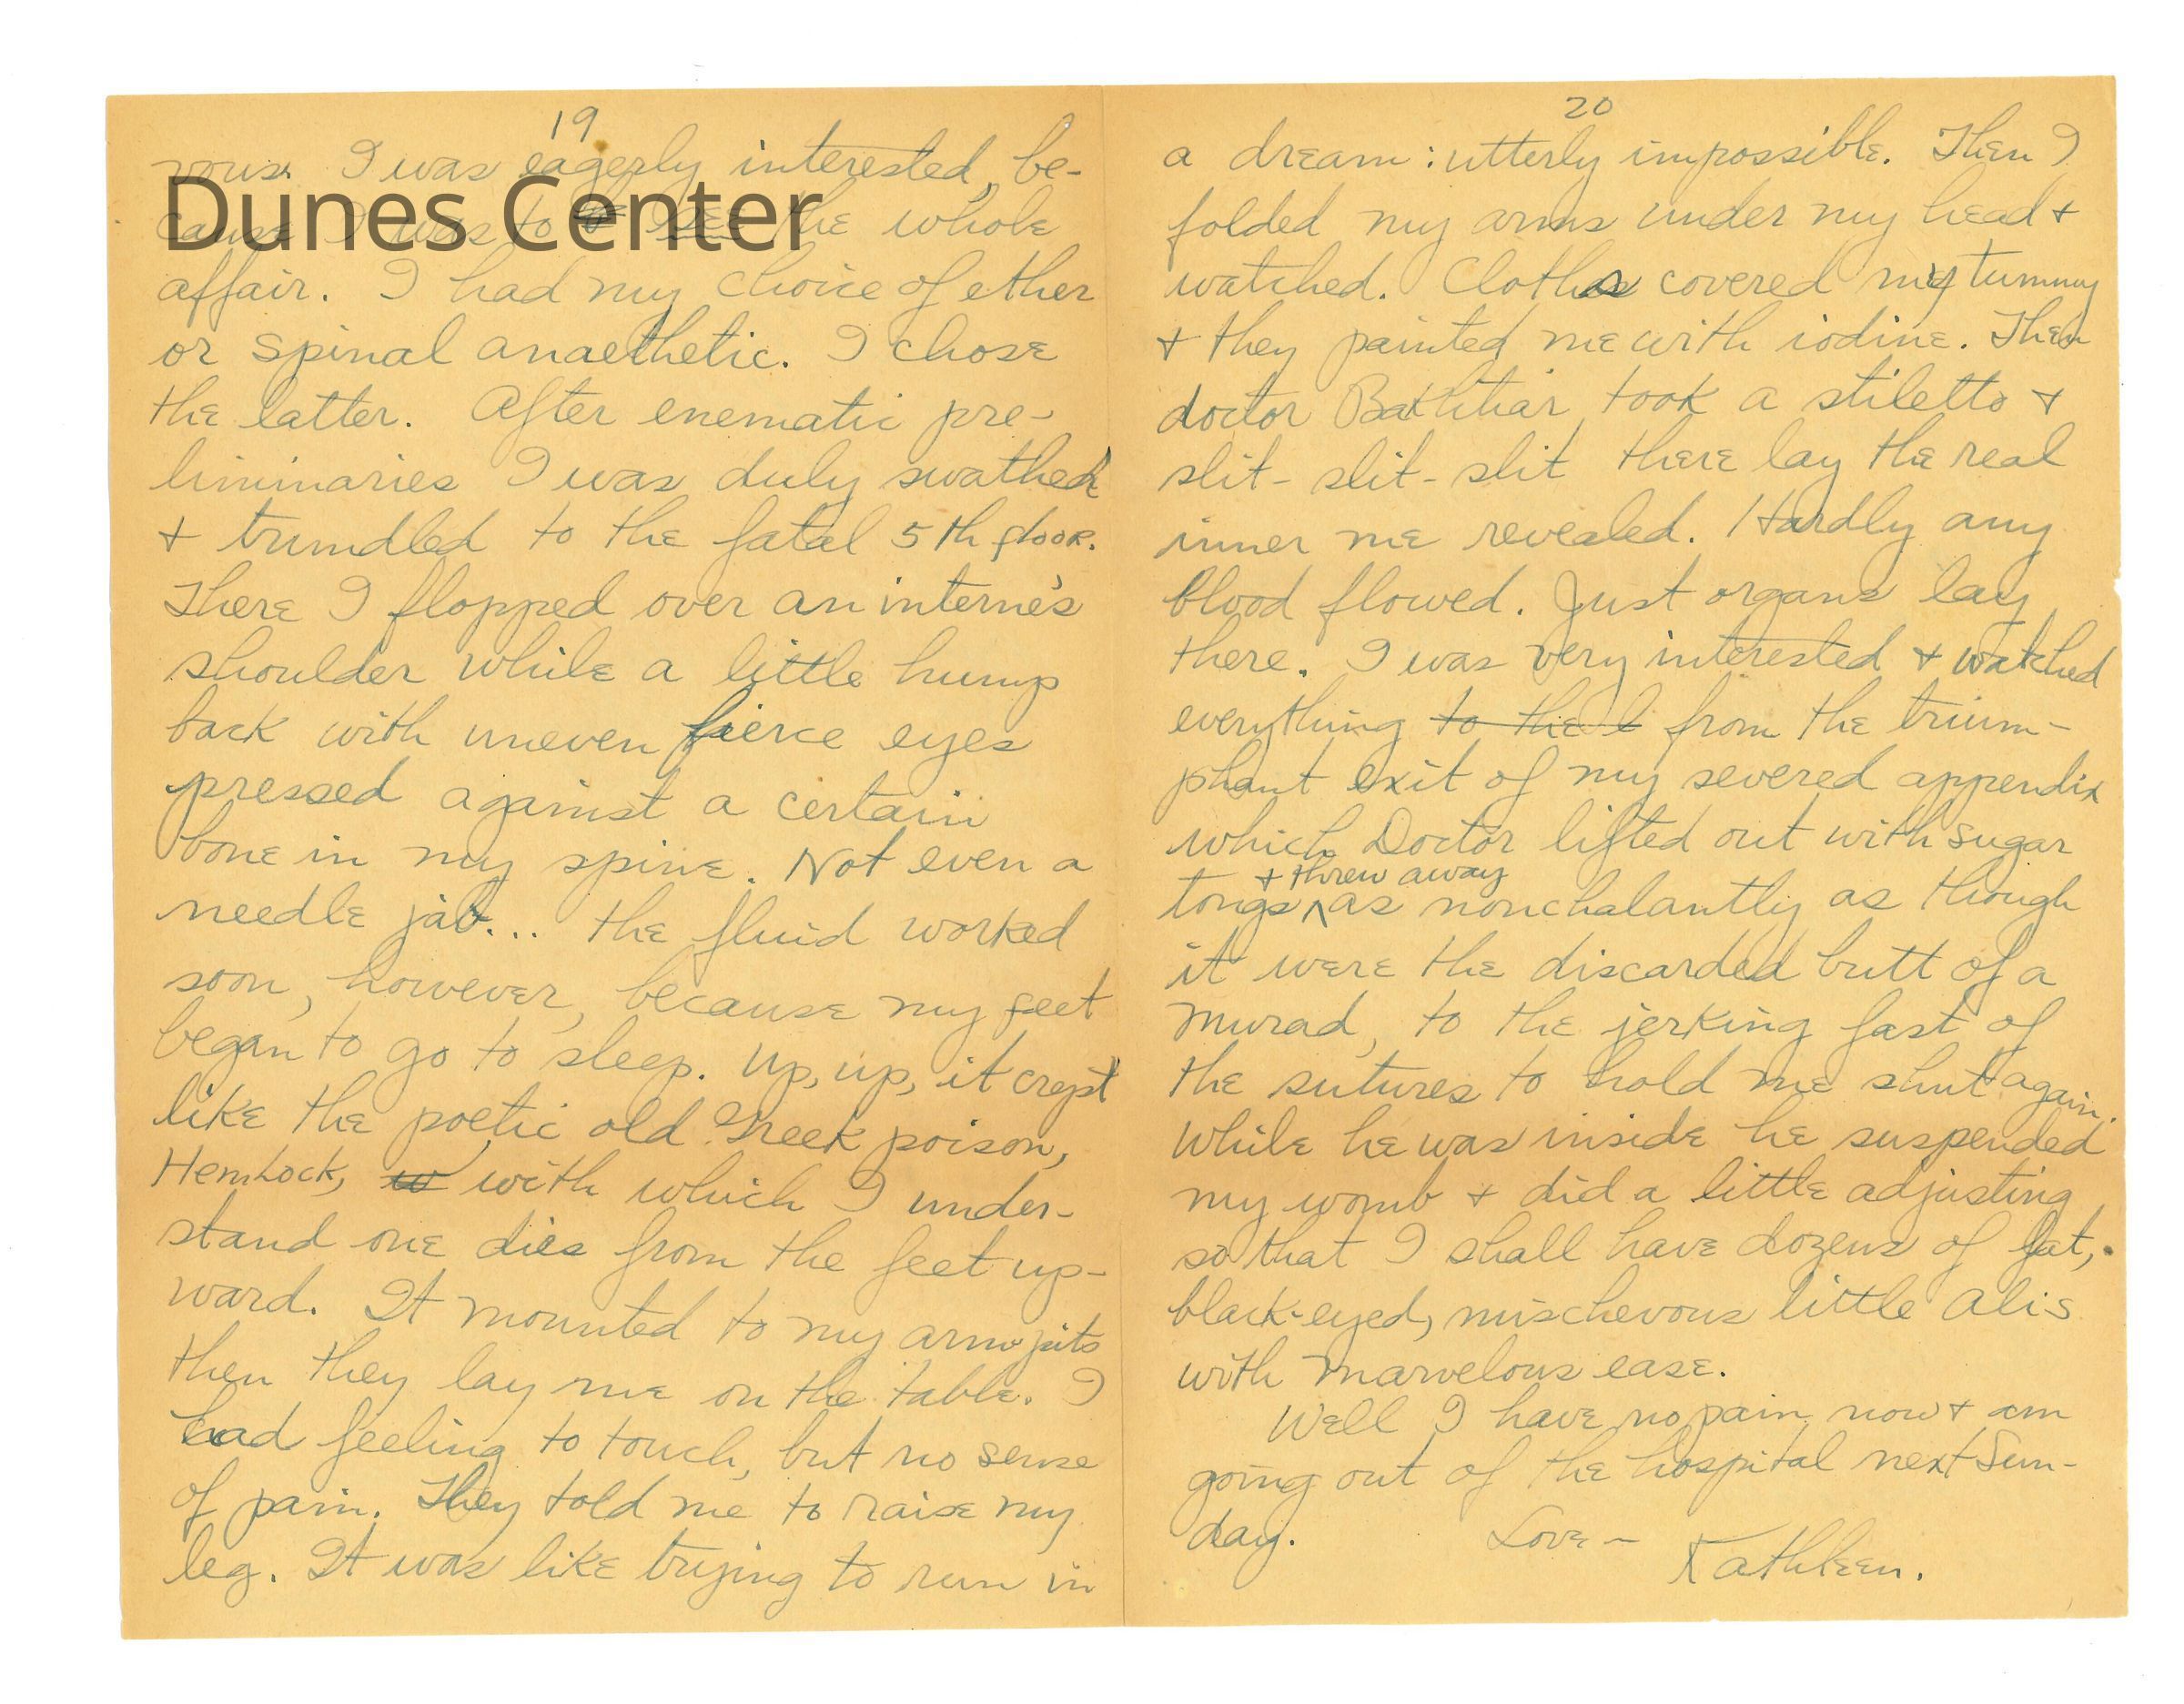 19
vous. I was eagerly interested, be-
cause I was to see the whole
Dunes Center
affair. I had my choice of ether
or spinal anaethetic. I chose
the latter. After enematic pre-
liminaries I was duly swathed
+ trundled to the fatal 5th floor.
There I flopped over an interne's
shoulder while a little hump
back with uneven fierce eyes
pressed against a certain
bone in my spine. Not even a
needle jab... the fluid worked
soon, however, because my feet
began to go to sleep. Up, up, it crept
like the poetic old Greek poison,
Hemlock, w with which I under-
stand one dies from the feet up-
ward. It mounted to my armpits
then they lay me on the table. I
had feeling to touch, but no sense
of pain. They told me to raise my
leg. It was like trying to run in
20
a dream: utterly impossible. Then I
folded my arms under my head +
watched. Cloths covered my tummy
+ they painted me with iodine. Then
doctor Bakhtiar took a stiletto +
slit - slit - slit there lay the real
inner me revealed. Hardly any
blood flowed. Just organs lay
there. I was very interested + watched
everything to the l from the trium-
phant exit of my severed appendix
which Doctor lifted out with sugar
+ threw away
tongs ^ as nonchalantly as though
it were the discarded butt of a
Murad, to the jerking fast of
the sutures to hold me shut again.
While he was inside he suspended
my womb + did a little adjusting
so that I shall have dozens of fat,
black-eyed, mischevous little Alis
with marvelous ease.
Well I have no pain now + am
going out of the hospital next Sun-
day. Love ~
Kathleen.